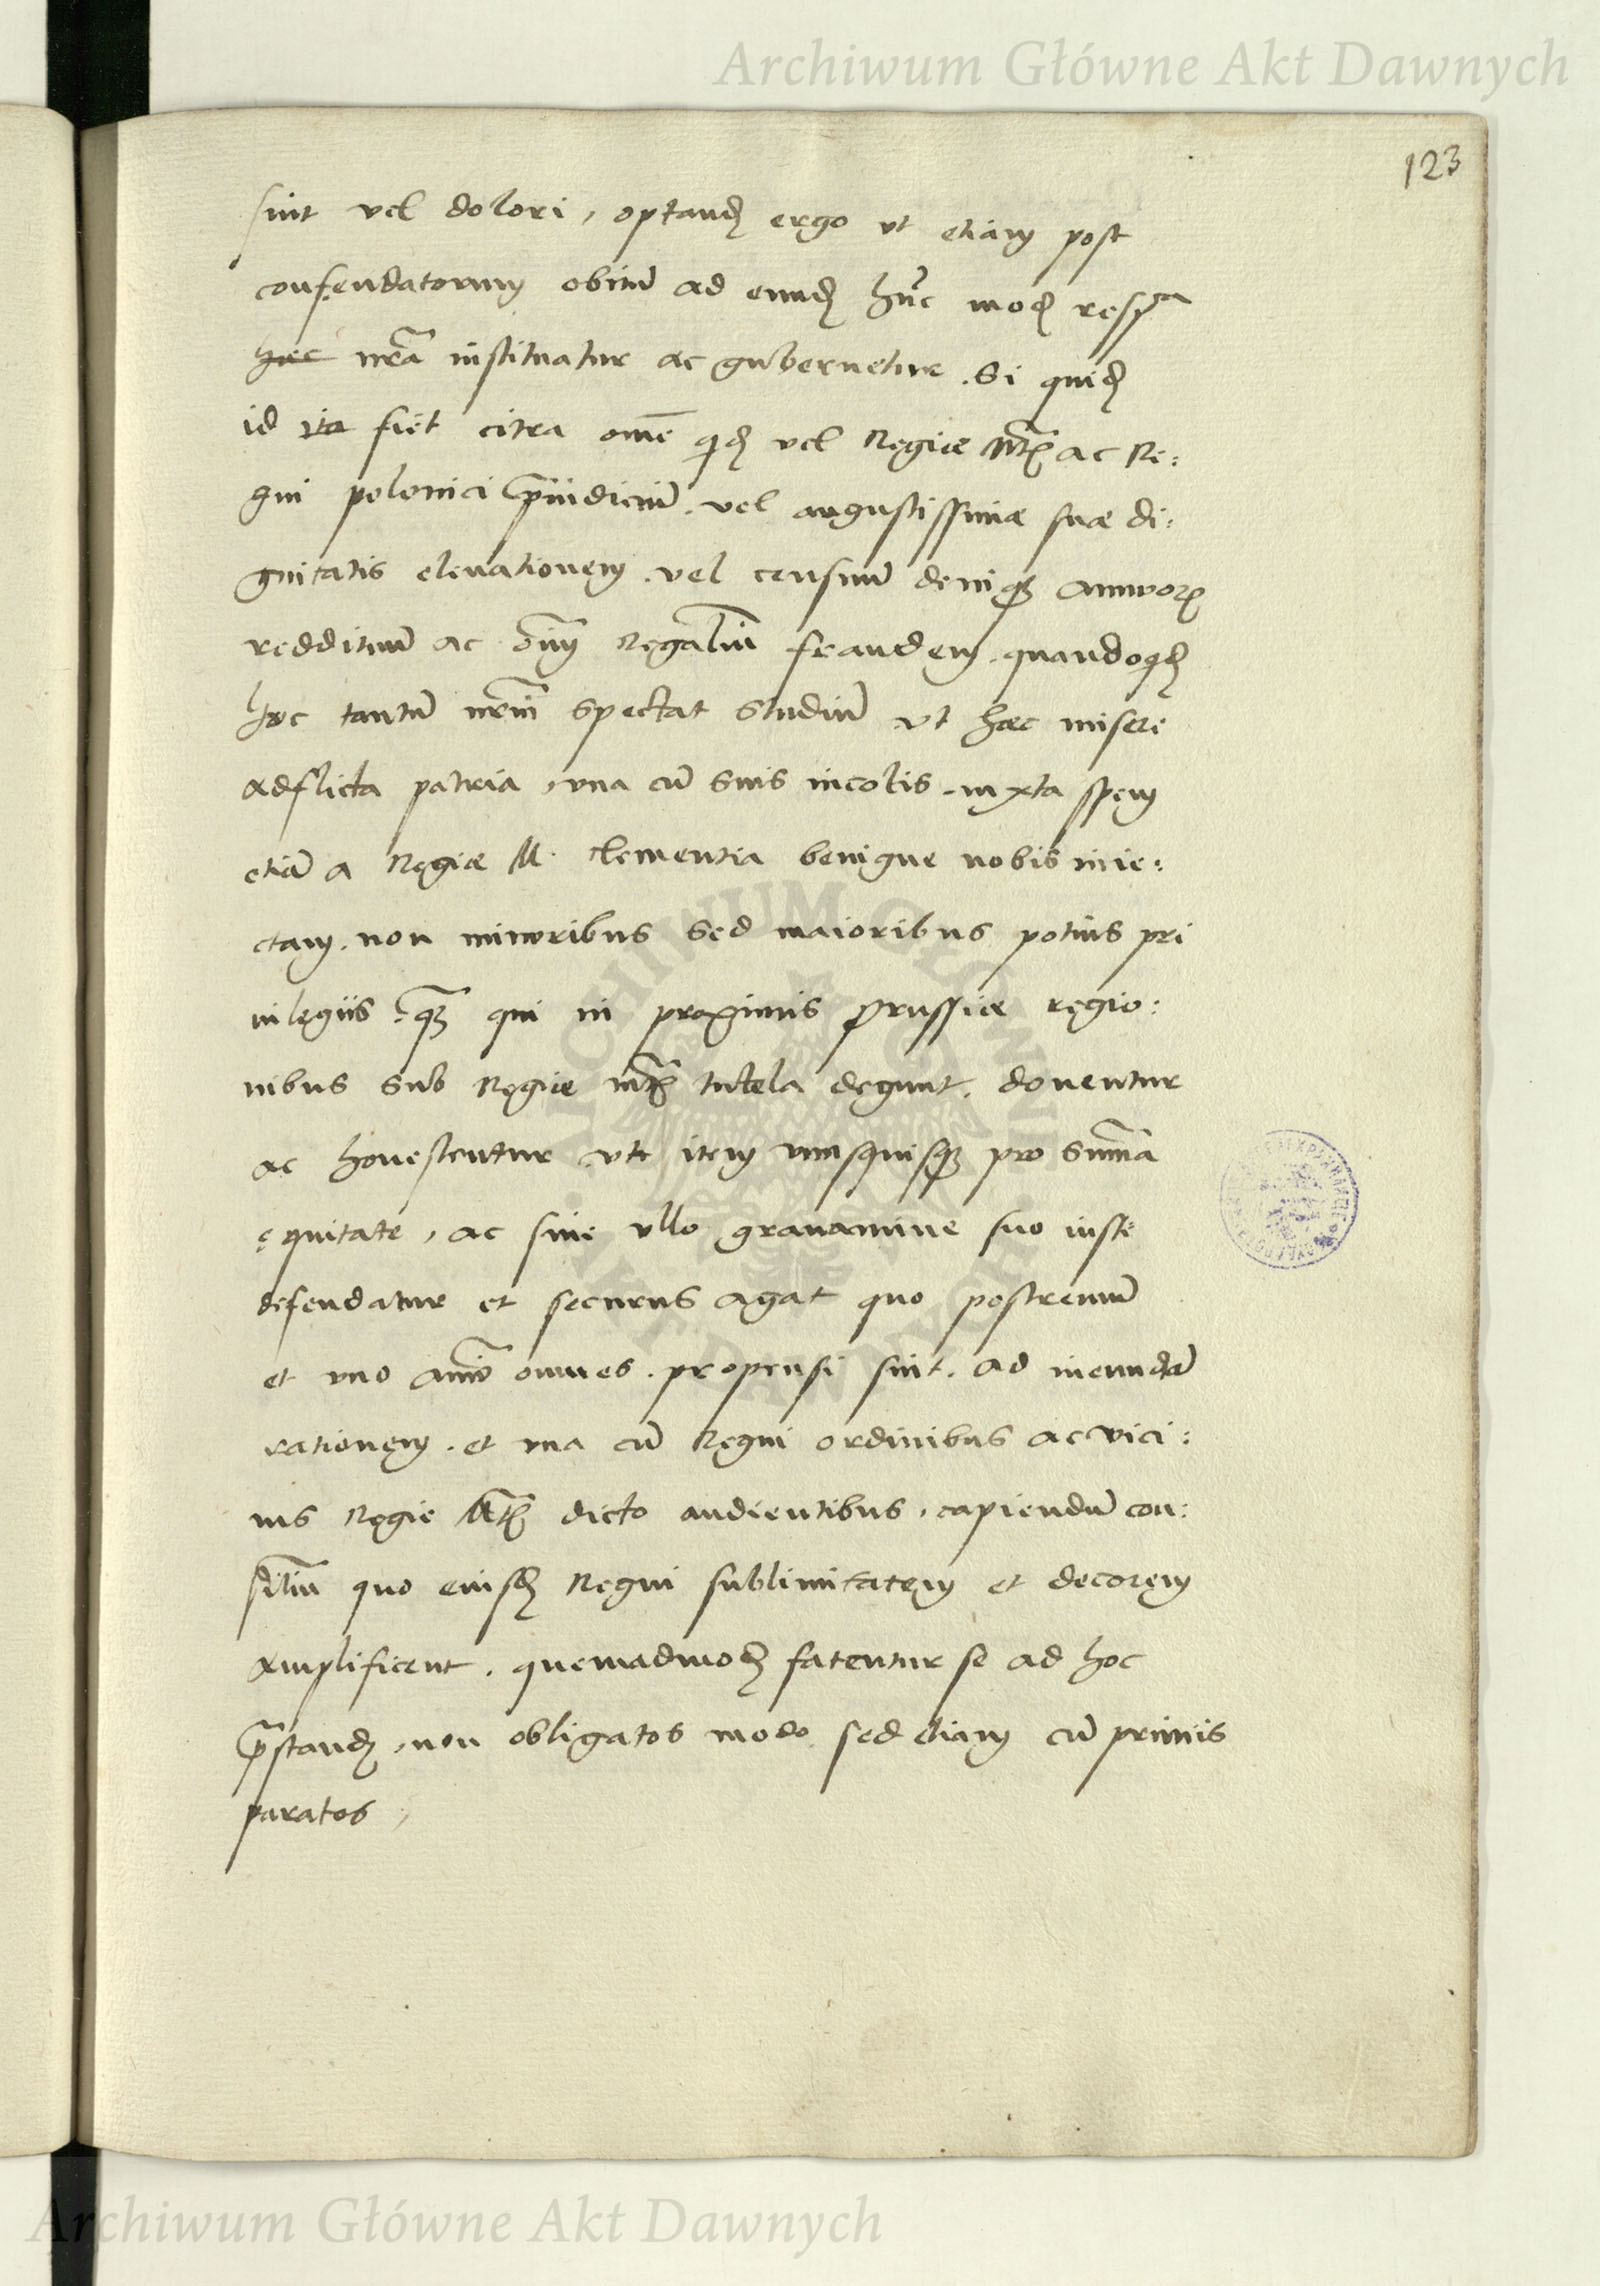 Archiwum Główne Akt Dawnych
123
sint vel dolori, optand[ ergo vt etiam post
confeudatorum obitũ ad eund[ hũc mod[ respᵃ
haec nr̃a instituatur ac gubernetur. Si quid[
id ita fiet citra om̃e qd[ vel Regiae Mt̃[ ac Re:
gni polonici p̃iudiciũ. vel augustissimae suae di:
gnitatis eleuationem. vel censuũ deniqʒ annuor[
reddituũ ac oĩm Regaliũ fraudem. quandoqd[
hoc tantũ nr̃m spectat studiũ vt haec misere
adflicta patria, vna cũ suis incolis. iuxta spem
etiã a Regiae M. clementia benigne nobis inie:
ctam. non minoribus sed maioribus potius pri
uilegiis, q̃ʒ qui in proximis Prussiae regio:
nibus sub Regiae mt̃[ tutela degunt. donentur
ac honestentur vti item vnusquisqʒ pro summã
ęquitate, ac sine vllo grauamine suo iuste
defendatur et securus agat quo postremũ
et vno aĩo omnes. propensi sint. ad ineundã
rationem. et vna cũ Regni ordinibus ac vici:
nis Regie Mt̃[ dicto audientibus, capiendũ con:
siliũ quo eiusd[ Regni sublimitatem et decorem
amplificent. quemadmod[ fatentur se ad hoc
p̃stand[, non obligatos modo sed etiam cũ primis
paratos,
ARCHIWUM GŁÓWNE AKT DAWNYCH
Archiwum Główne Akt Dawnych